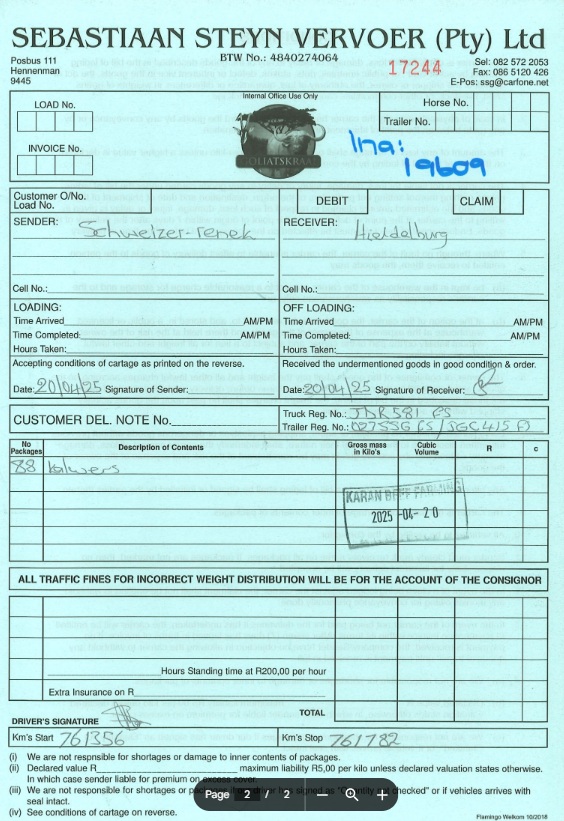 SEBASTIAAN STEYN VERVOER (Pty) Ltd
Posbus 111
Hennenman
9445
BTW No.: 4840274064
17244
Sel: 082 572 2053
Fax: 086 5120 426
E-Pos: ssg@carfone.net
LOAD No.
INVOICE No.
Internal Office Use Only
GOLIATSKRAAL
Horse No.
Trailer No.
Ina:
19609
Customer O/No.
Load No.
DEBIT
CLAIM
SENDER: Schweizer-renek
Cell No.:
RECEIVER: Hieldelburg
Cell No.:
LOADING:
Time Arrived AM/PM
Time Completed: AM/PM
Hours Taken:
OFF LOADING:
Time Arrived AM/PM
Time Completed: AM/PM
Hours Taken:
Accepting conditions of cartage as printed on the reverse.
Date: 20/04/25 Signature of Sender:
Received the undermentioned goods in good condition & order.
Date: 20/04/25 Signature of Receiver:
CUSTOMER DEL. NOTE No.
Truck Reg. No.: JDR581 FS
Trailer Reg. No.:
No Packages
Description of Contents
Gross mass in Kilo's
Cubic Volume
R
c
88 kalwers
KARAN BEEF FARMING
2025 -04- 20
ALL TRAFFIC FINES FOR INCORRECT WEIGHT DISTRIBUTION WILL BE FOR THE ACCOUNT OF THE CONSIGNOR
Hours Standing time at R200,00 per hour
Extra Insurance on R
TOTAL
DRIVER'S SIGNATURE
Km's Start 761356
Km's Stop 761782
(i) We are not responsible for shortages or damage to inner contents of packages.
(ii) Declared value R maximum liability R5,00 per kilo unless declared valuation states otherwise.
In which case sender liable for premium on excess cover.
(iii) We are not responsible for shortages or packages if driver has signed as "Quantity not checked" or if vehicles arrives with
seal intact.
(iv) See conditions of cartage on reverse.
Page 2 / 2
Flamingo Welkom 10/2018